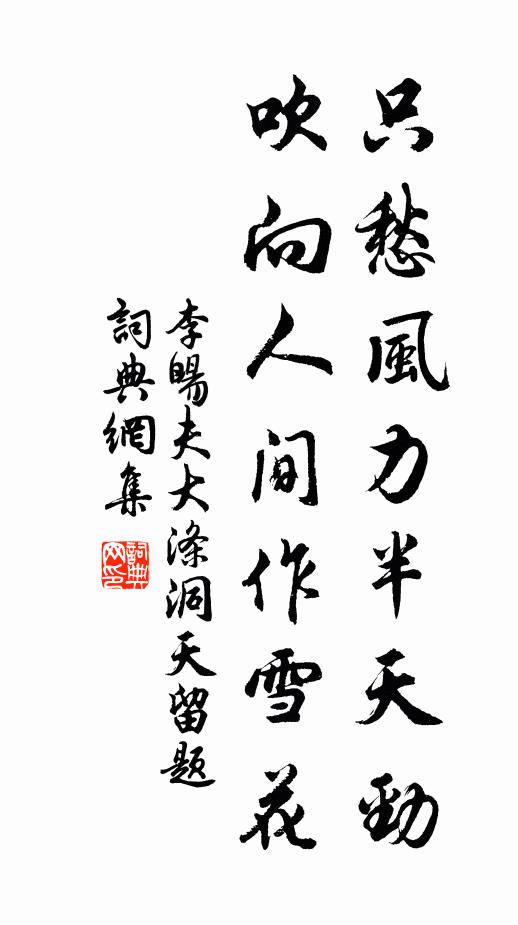 只愁風力半天勁
吹向人間作雪花
李暘夫大滌洞天留題
詞典網集
詞典網印